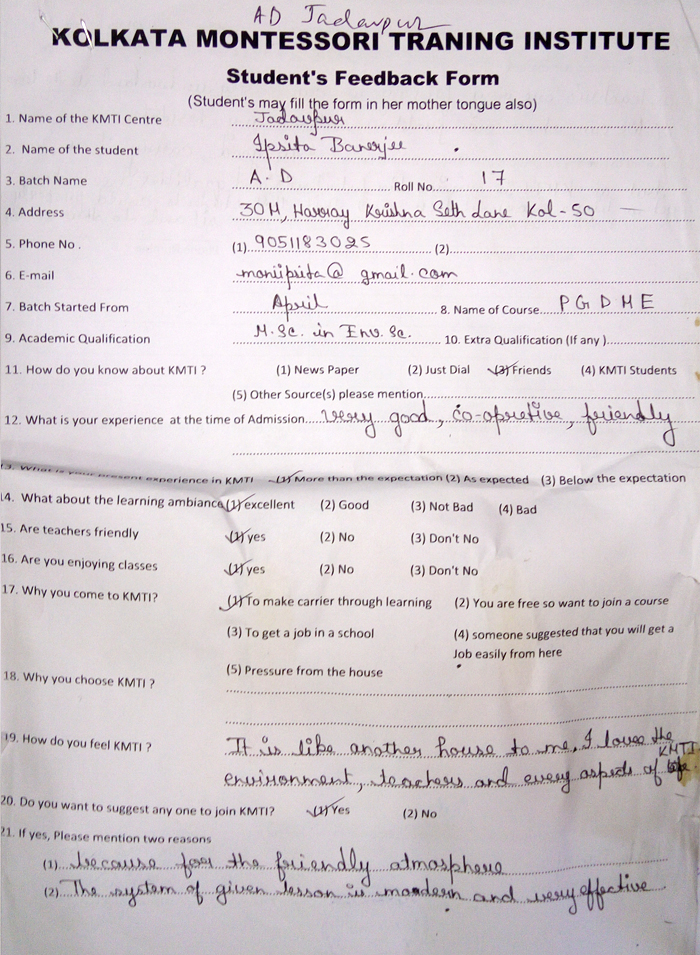 AD Jadavpur
KOLKATA MONTESSORI TRANING INSTITUTE
Student's Feedback Form
(Student's may fill the form in her mother tongue also)
1. Name of the KMTI Centre Jadavpur
2. Name of the student Ipsita Banerjee
3. Batch Name A.D Roll No. 17
4. Address 30H, Harray Krishna Seth Lane Kol-50
5. Phone No. (1) 9051183025 (2)
6. E-mail moniipsita@gmail.com
7. Batch Started From April 8. Name of Course PGDME
9. Academic Qualification M.Sc. in Env. Sc. 10. Extra Qualification (If any)
11. How do you know about KMTI ? (1) News Paper (2) Just Dial (3) Friends (4) KMTI Students
(5) Other Source(s) please mention
12. What is your experience at the time of Admission Very good, co-opretive, friendly
13. What is your present experience in KMTI (1) More than the expectation (2) As expected (3) Below the expectation
14. What about the learning ambiance (1) excellent (2) Good (3) Not Bad (4) Bad
15. Are teachers friendly (1) yes (2) No (3) Don't No
16. Are you enjoying classes (1) yes (2) No (3) Don't No
17. Why you come to KMTI? (1) To make carrier through learning (2) You are free so want to join a course
(3) To get a job in a school (4) someone suggested that you will get a
Job easily from here
(5) Pressure from the house
18. Why you choose KMTI ?
19. How do you feel KMTI ? It is like another house to me. I love the
environment, teachers and every aspects of KMTI.
20. Do you want to suggest any one to join KMTI? (1) Yes (2) No
21. If yes, Please mention two reasons
(1) because for the friendly atmosphere
(2) The system of given lesson is mordern and very effective